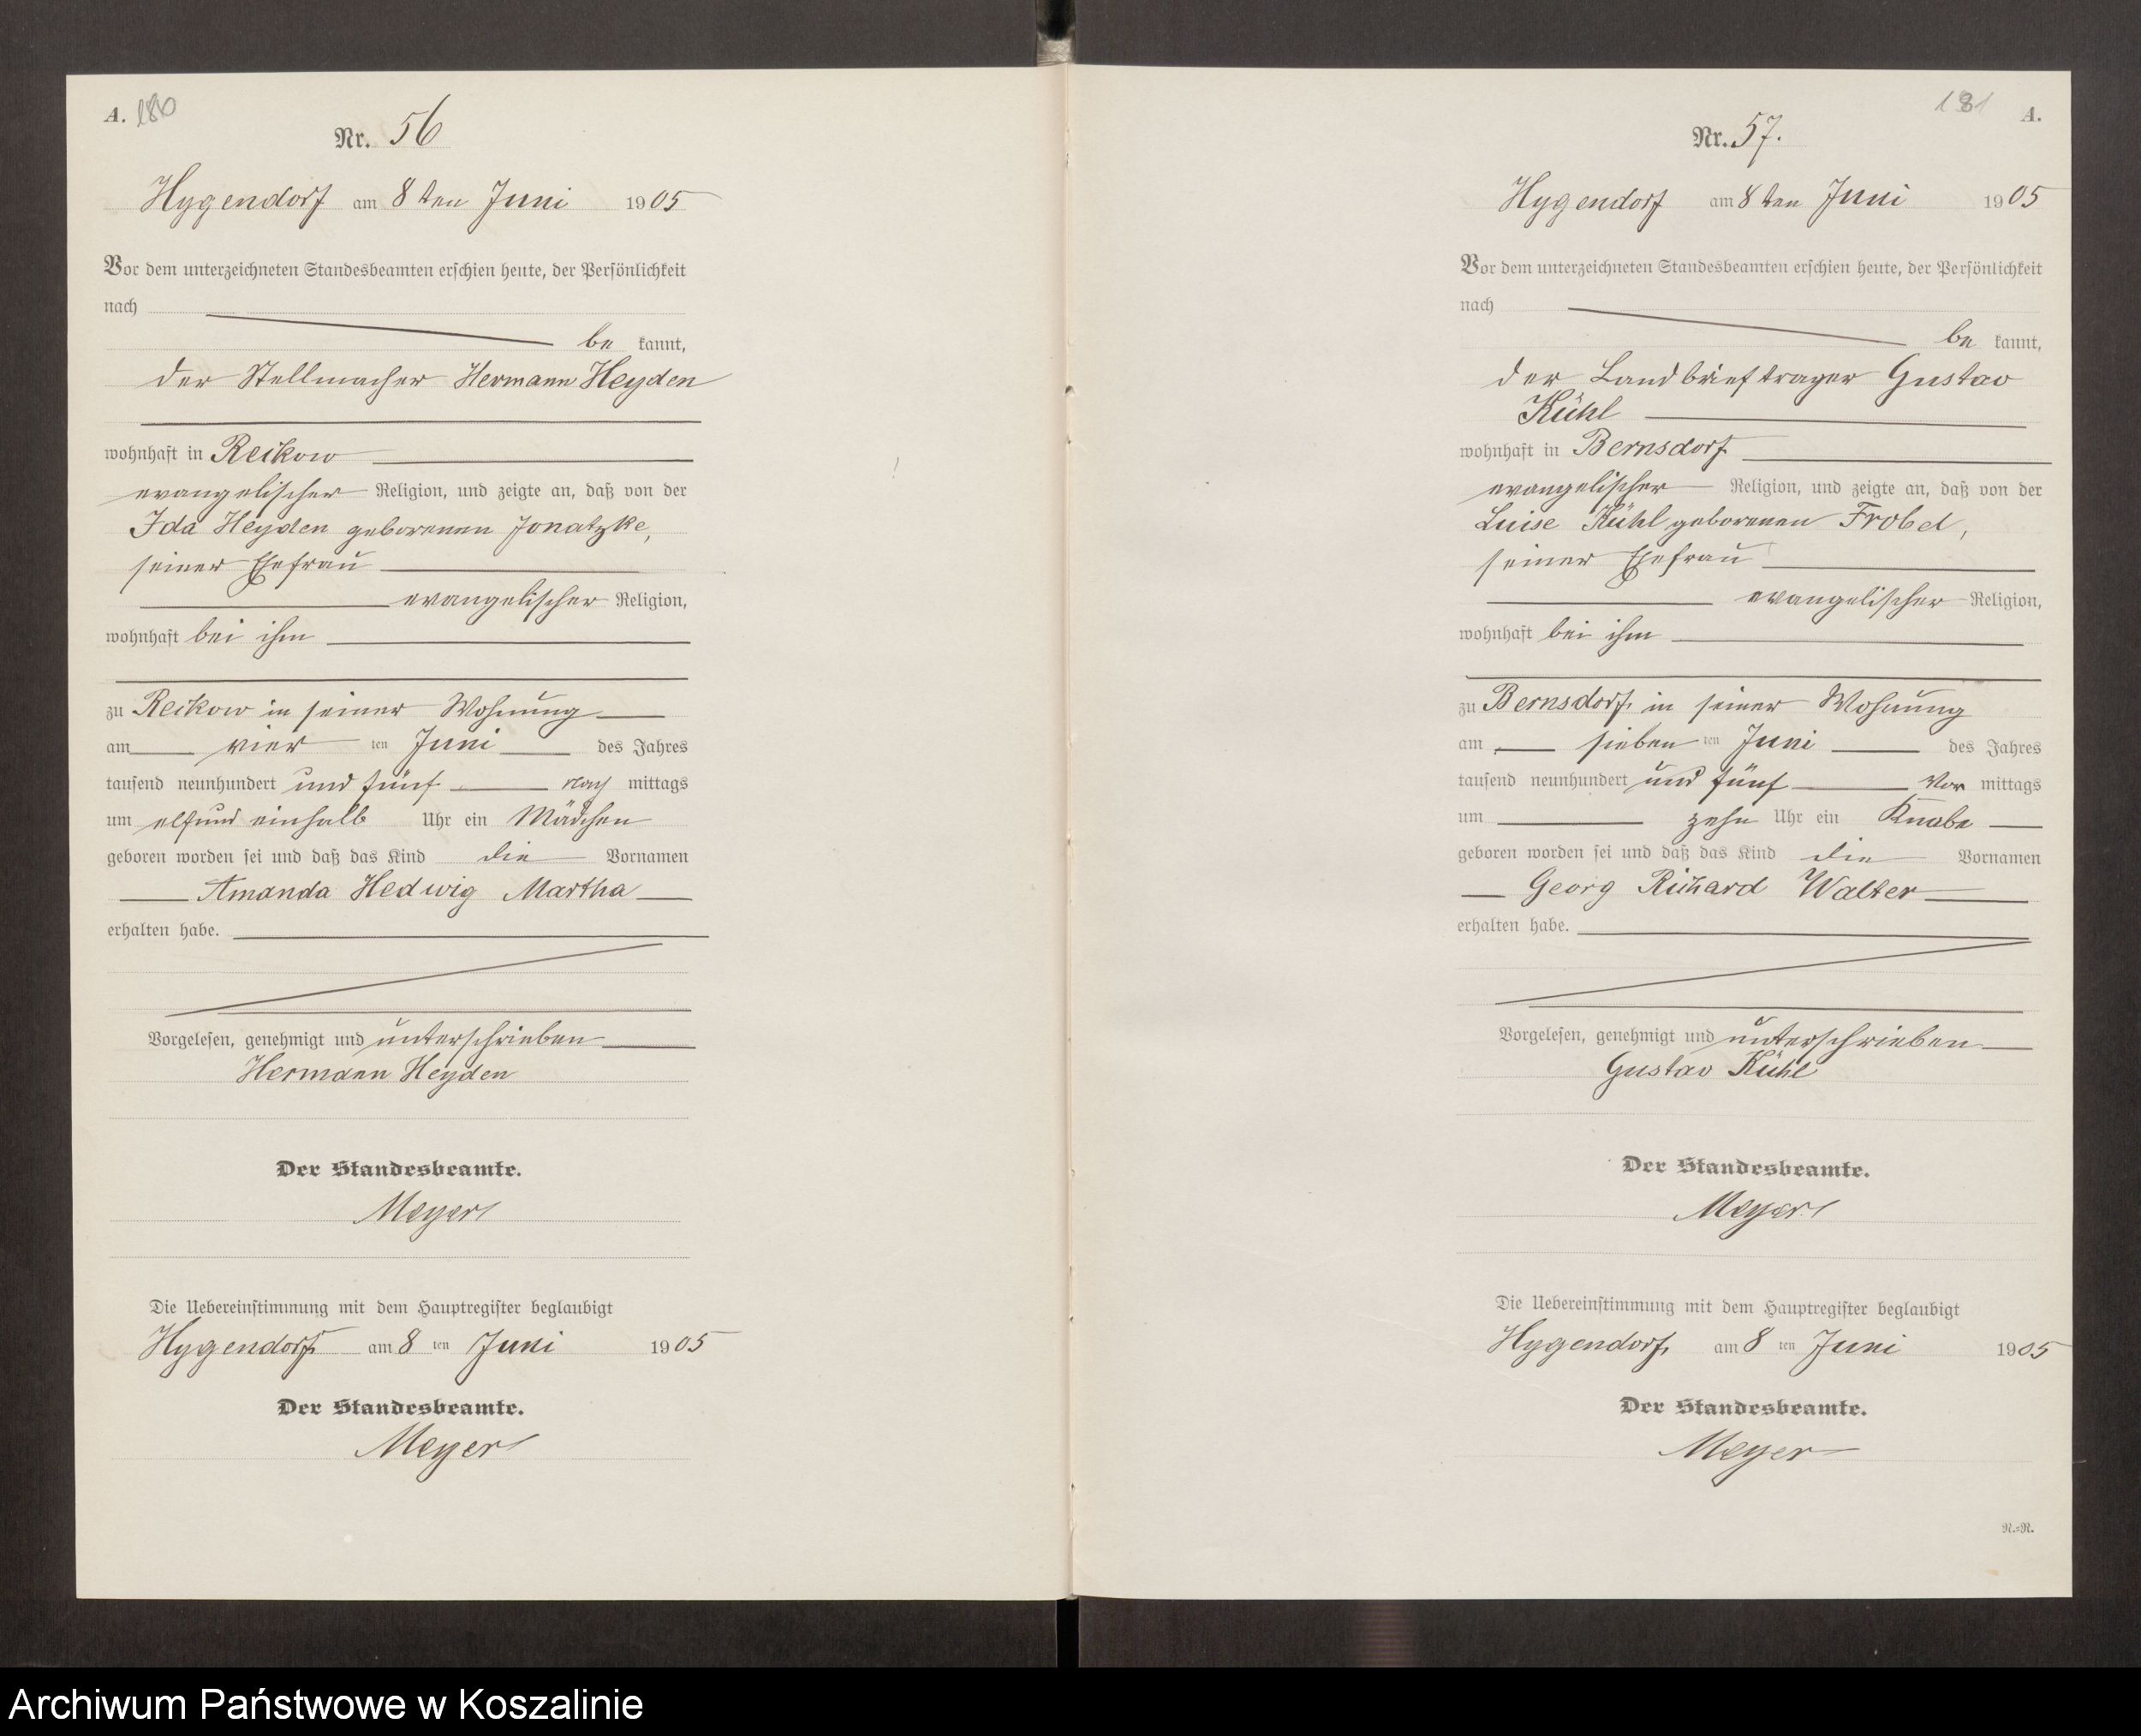 A. 180
Nr. 56
Hygendorf am 8ten Juni 1905
Vor dem unterzeichneten Standesbeamten erschien heute, der Persönlichkeit
nach
be kannt,
der Stellmacher Hermann Heyden
wohnhaft in Reikow
evangelischer Religion, und zeigte an, daß von der
Ida Heyden geborenen Jonatzke,
seiner Ehefrau
evangelischer Religion,
wohnhaft bei ihm
zu Reikow in seiner Wohnung
am vier ten Juni des Jahres
tausend neunhundert und fünf nach mittags
um elf und einhalb Uhr ein Mädchen
geboren worden sei und daß das Kind die Vornamen
Amanda Hedwig Martha
erhalten habe.
Vorgelesen, genehmigt und unterschrieben
Hermann Heyden
Der Standesbeamte.
Meyer
Die Uebereinstimmung mit dem Hauptregister beglaubigt
Hygendorf am 8 ten Juni 1905
Der Standesbeamte.
Meyer
181 A.
Nr. 57.
Hygendorf am 8ten Juni 1905
Vor dem unterzeichneten Standesbeamten erschien heute, der Persönlichkeit
nach
be kannt,
der Landbriefträger Gustav
Kühl
wohnhaft in Bernsdorf
evangelischer Religion, und zeigte an, daß von der
Luise Kühl geborenen Frobel,
seiner Ehefrau
evangelischer Religion,
wohnhaft bei ihm
zu Bernsdorf in seiner Wohnung
am sieben ten Juni des Jahres
tausend neunhundert und fünf Vor mittags
um zehn Uhr ein Knabe
geboren worden sei und daß das Kind die Vornamen
Georg Richard Walter
erhalten habe.
Vorgelesen, genehmigt und unterschrieben
Gustav Kühl
Der Standesbeamte.
Meyer
Die Uebereinstimmung mit dem Hauptregister beglaubigt
Hygendorf, am 8 ten Juni 1905
Der Standesbeamte.
Meyer
R.=R.
Archiwum Państwowe w Koszalinie